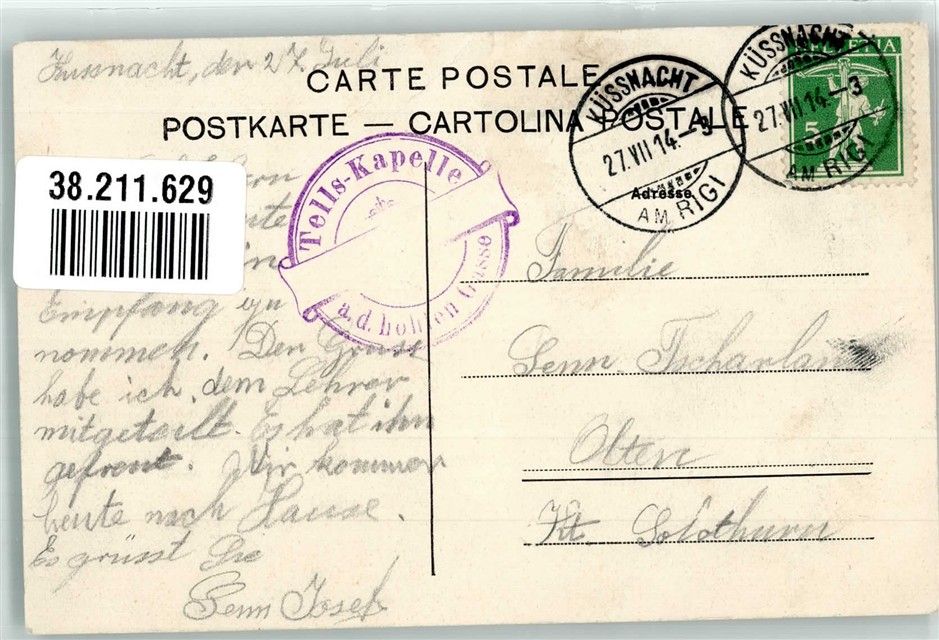 Küssnacht, den 27. Juli
CARTE POSTALE
POSTKARTE — CARTOLINA POSTALE
KÜSSNACHT
27.VII 14.–3
AM RIGI
KÜSSNACHT
27.VII 14.–3
AM RIGI
HELVETIA
5
Adresse
38.211.629
Tells-Kapelle
a. d. hohlen Gasse
Empfang zu
nommen. Den Gruss
habe ich dem Lehrer
mitgeteilt. Es hat ihn
gefreut. Wir kommen
heute nach Hause.
Es grüsst Sie
Senn Josef
Familie
Senn
Olten
Kt. Solothurn